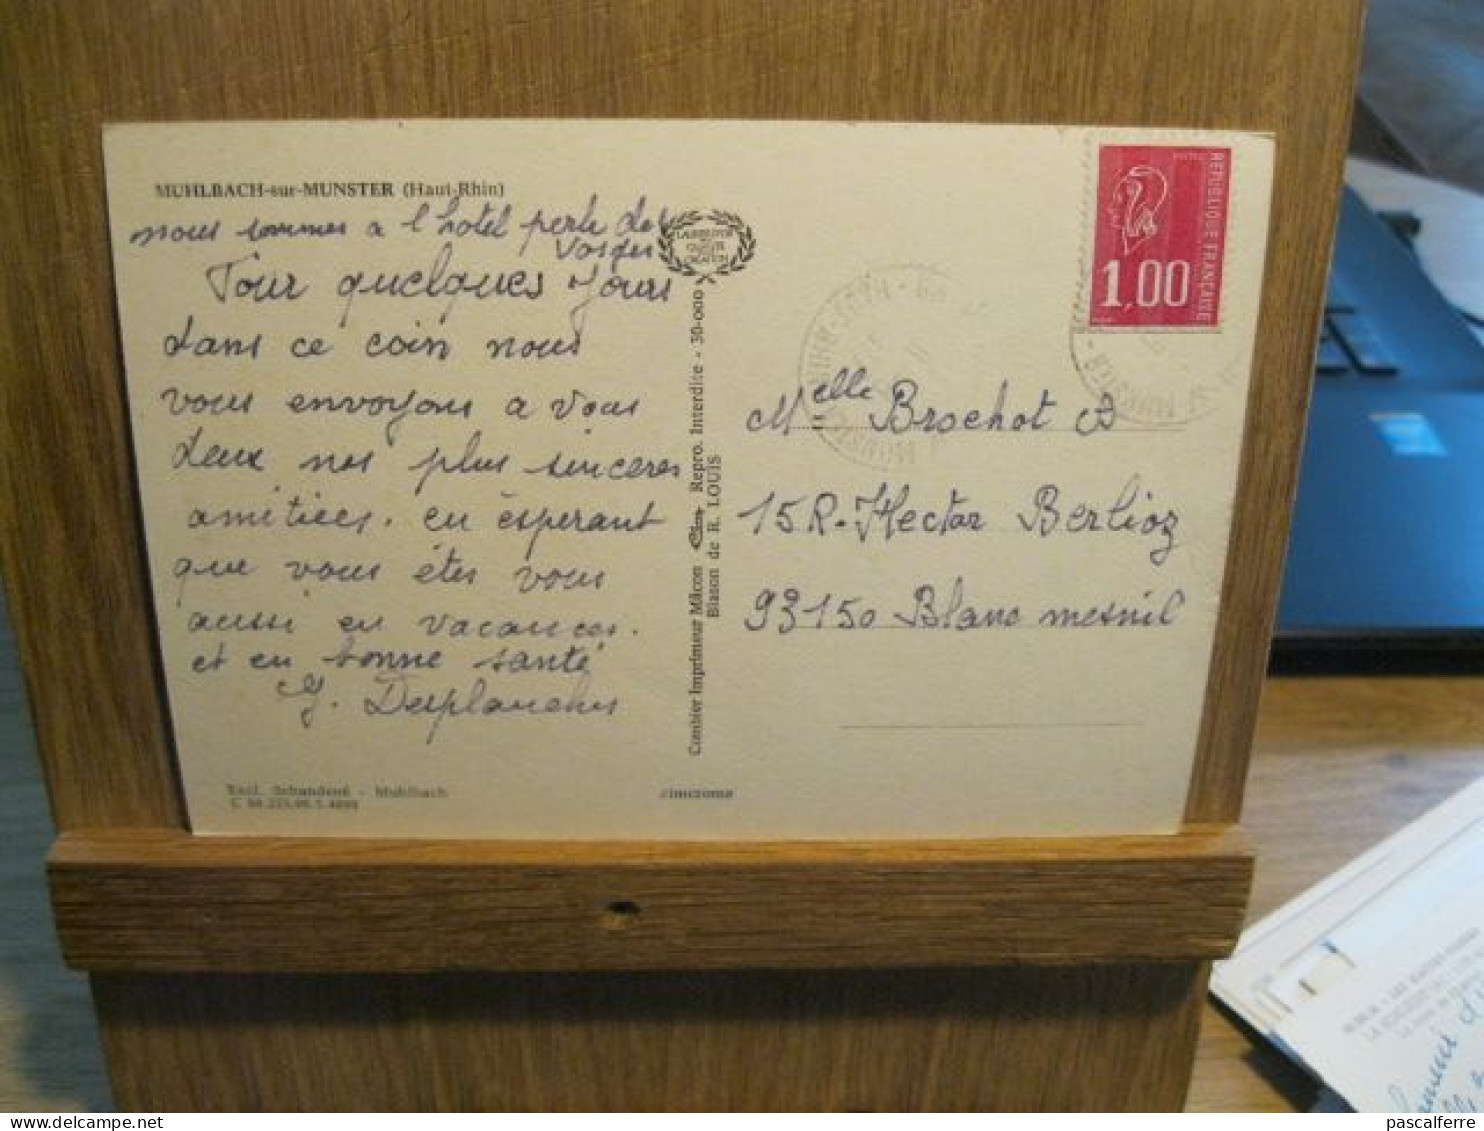 MUHLBACH-sur-MUNSTER (Haut-Rhin)
nous sommes a l'hotel perle des
Vosges
Pour quelques jours
dans ce coin nous
vous envoyons a vous
deux nos plus sinceres
amitiées. en éspérant
que vous étes vous
aussi en vacances.
et en bonne santé
G. Desplanches
Excl. Schandené - Muhlbach
Combier Imprimeur Mâcon Cim Repro. Interdite - 30-000
Blason de R. LOUIS
cimcroma
REPUBLIQUE FRANÇAISE
1,00
Melle Brochot B
15 R. Hector Berlioz
93150 Blanc mesnil
pascalferre